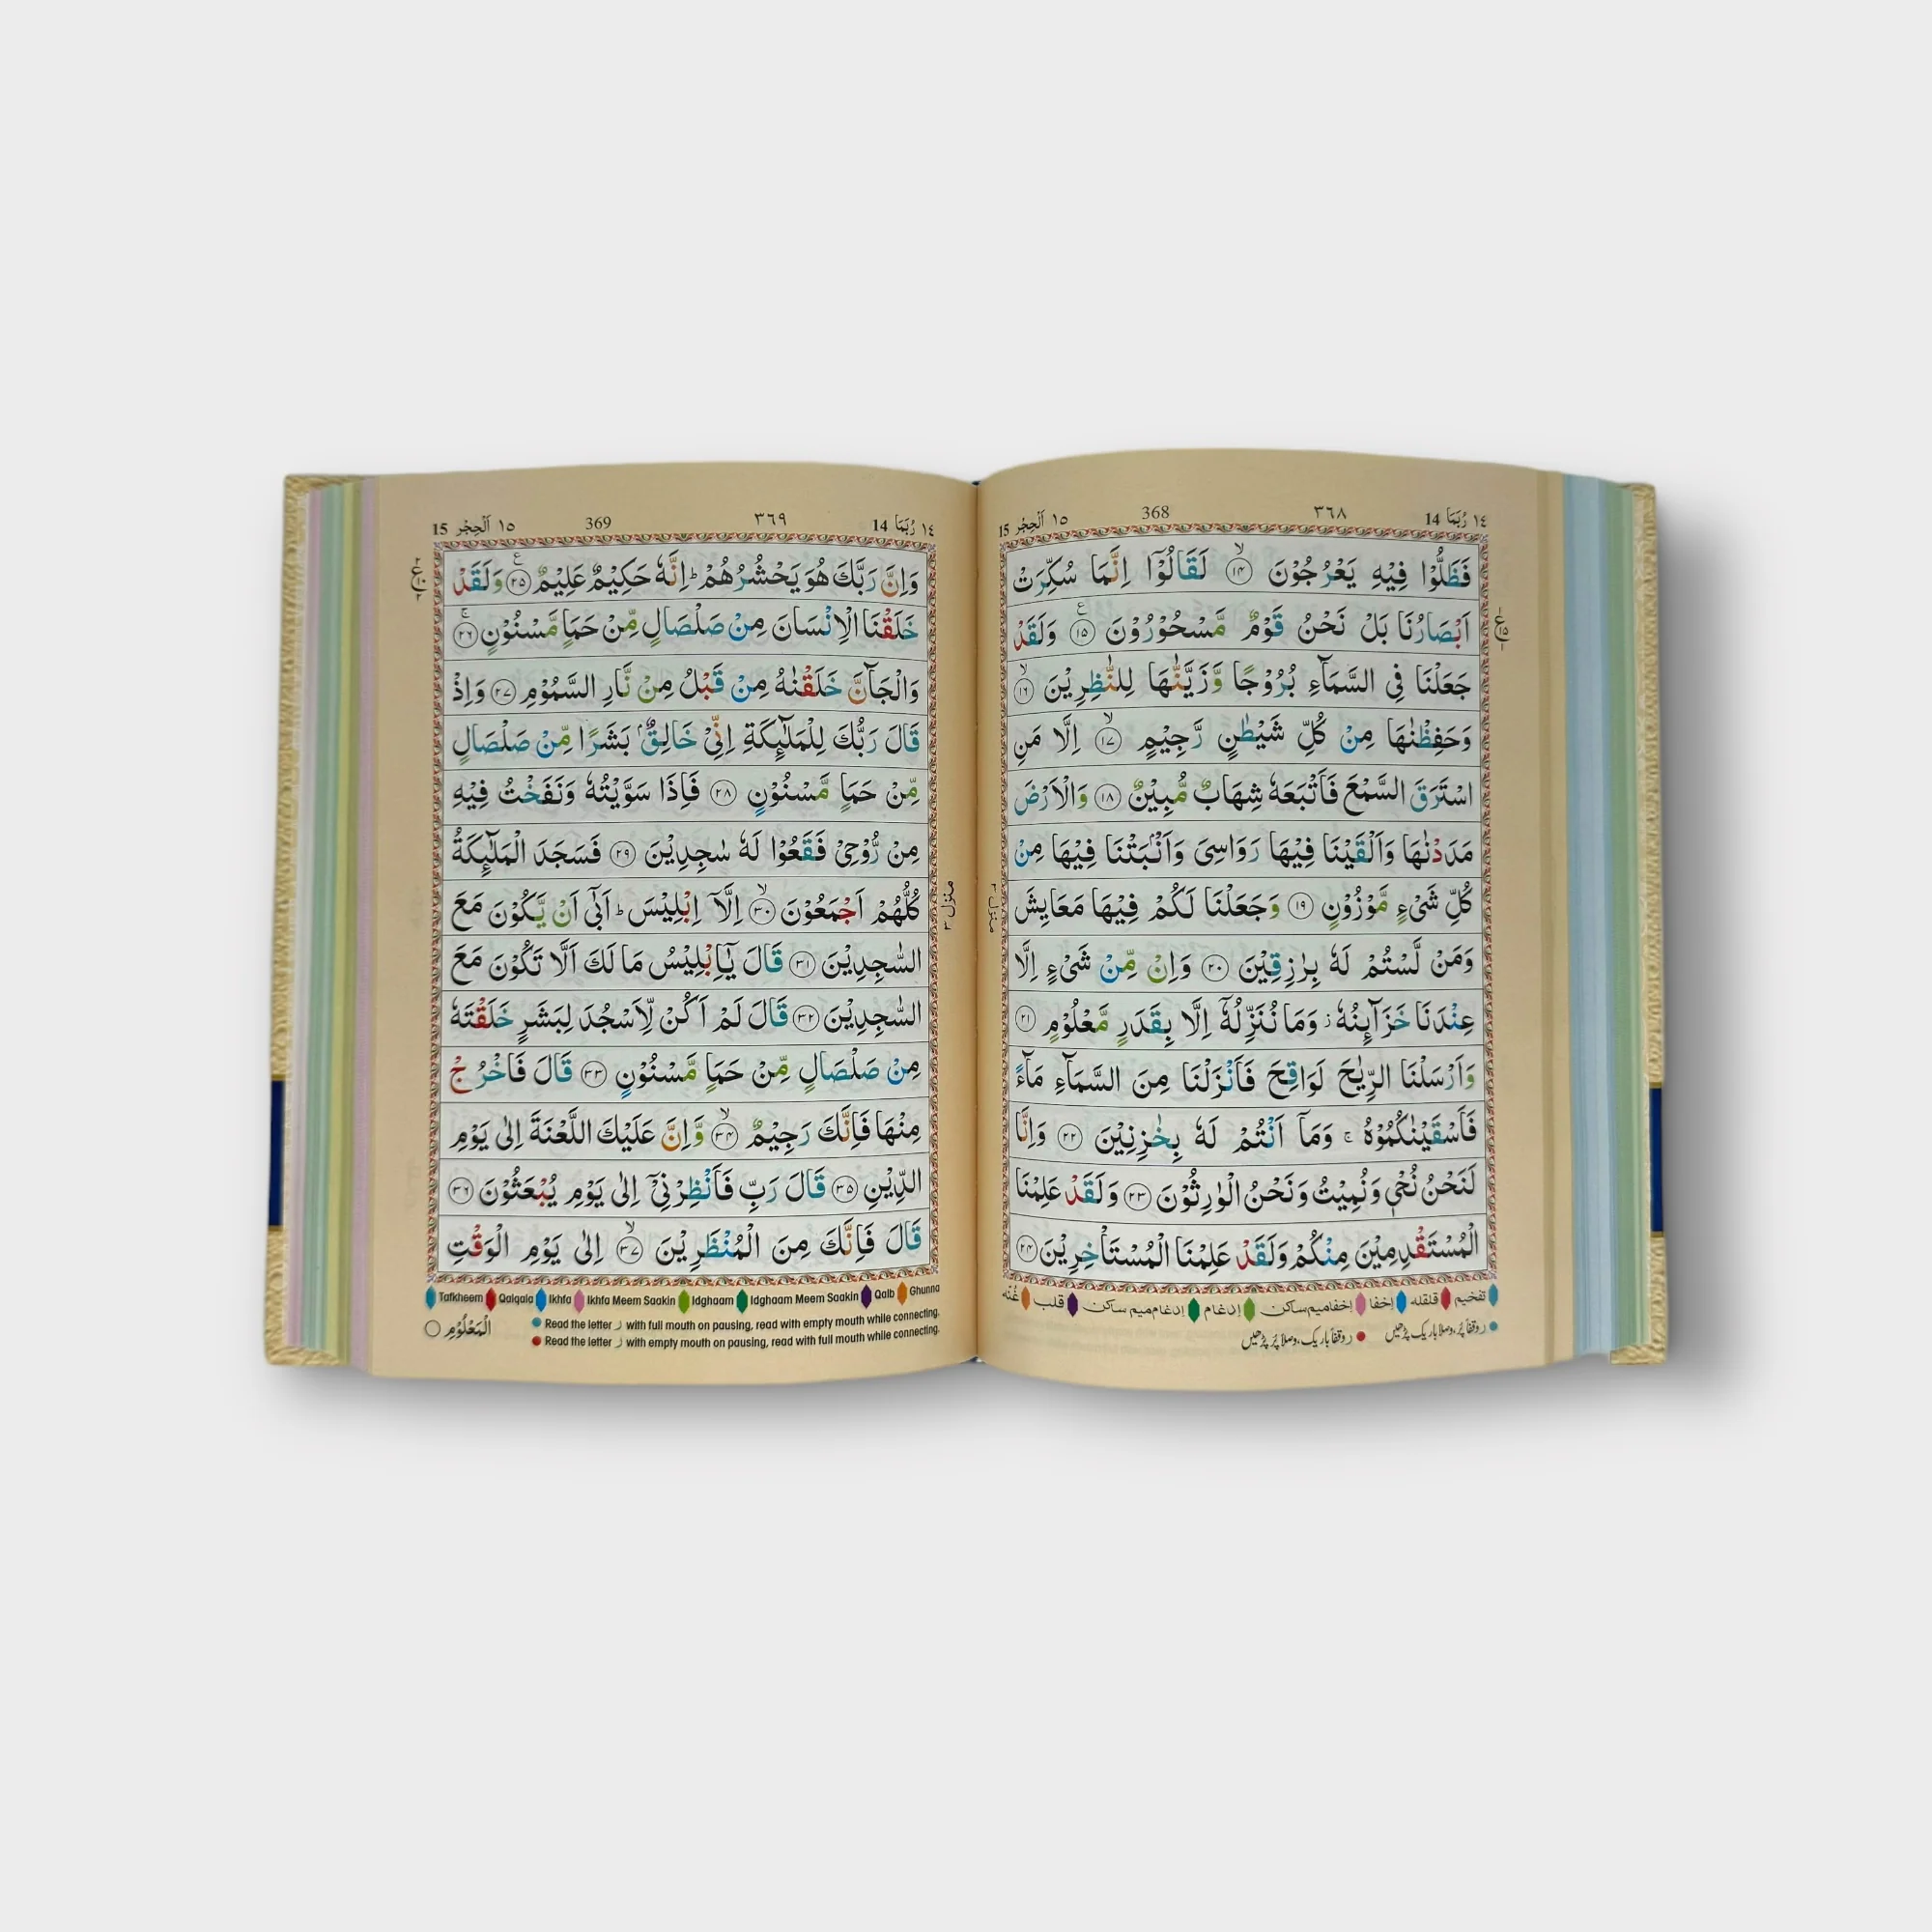 ١٤ رُبَمَا 14 ٣٦٨ 368 ١٥ اَلْحِجْر 15
فَظَلُّوْا فِيْهِ يَعْرُجُوْنَ ۙ۝١٤ لَقَالُوْٓا اِنَّمَا سُكِّرَتْ
اَبْصَارُنَا بَلْ نَحْنُ قَوْمٌ مَّسْحُوْرُوْنَ ۝١٥ ع وَلَقَدْ
جَعَلْنَا فِى السَّمَآءِ بُرُوْجًا وَّزَيَّنّٰهَا لِلنّٰظِرِيْنَ ۙ۝١٦
وَحَفِظْنٰهَا مِنْ كُلِّ شَيْطٰنٍ رَّجِيْمٍ ۙ۝١٧ اِلَّا مَنِ
اسْتَرَقَ السَّمْعَ فَاَتْبَعَهٗ شِهَابٌ مُّبِيْنٌ ۝١٨ وَالْاَرْضَ
مَدَدْنٰهَا وَاَلْقَيْنَا فِيْهَا رَوَاسِىَ وَاَنْۢبَتْنَا فِيْهَا مِنْ
كُلِّ شَىْءٍ مَّوْزُوْنٍ ۝١٩ وَجَعَلْنَا لَكُمْ فِيْهَا مَعَايِشَ
وَمَنْ لَّسْتُمْ لَهٗ بِرٰزِقِيْنَ ۝٢٠ وَاِنْ مِّنْ شَىْءٍ اِلَّا
عِنْدَنَا خَزَآئِنُهٗ ز وَمَا نُنَزِّلُهٗٓ اِلَّا بِقَدَرٍ مَّعْلُوْمٍ ۝٢١
وَاَرْسَلْنَا الرِّيٰحَ لَوَاقِحَ فَاَنْزَلْنَا مِنَ السَّمَآءِ مَآءً
فَاَسْقَيْنٰكُمُوْهُ ۚ وَمَآ اَنْتُمْ لَهٗ بِخٰزِنِيْنَ ۝٢٢ وَاِنَّا
لَنَحْنُ نُحْىٖ وَنُمِيْتُ وَنَحْنُ الْوٰرِثُوْنَ ۝٢٣ وَلَقَدْ عَلِمْنَا
الْمُسْتَقْدِمِيْنَ مِنْكُمْ وَلَقَدْ عَلِمْنَا الْمُسْتَاْخِرِيْنَ ۝٢٤
منزل ٣
تفخیم قلقله إخفا إخفامیم ساکن إدغام إدغام میم ساکن قلب غُنّه
ر وقفاً پُر، وصلاً باریک پڑھیں ر وقفاً باریک، وصلاً پُر پڑھیں
١٤ رُبَمَا 14 ٣٦٩ 369 ١٥ اَلْحِجْر 15
وَاِنَّ رَبَّكَ هُوَ يَحْشُرُهُمْ ؕ اِنَّهٗ حَكِيْمٌ عَلِيْمٌ ۝٢٥ ع وَلَقَدْ
خَلَقْنَا الْاِنْسَانَ مِنْ صَلْصَالٍ مِّنْ حَمَاٍ مَّسْنُوْنٍ ۚ۝٢٦
وَالْجَآنَّ خَلَقْنٰهُ مِنْ قَبْلُ مِنْ نَّارِ السَّمُوْمِ ۝٢٧ وَاِذْ
قَالَ رَبُّكَ لِلْمَلٰٓئِكَةِ اِنِّىْ خَالِقٌۢ بَشَرًا مِّنْ صَلْصَالٍ
مِّنْ حَمَاٍ مَّسْنُوْنٍ ۝٢٨ فَاِذَا سَوَّيْتُهٗ وَنَفَخْتُ فِيْهِ
مِنْ رُّوْحِىْ فَقَعُوْا لَهٗ سٰجِدِيْنَ ۝٢٩ فَسَجَدَ الْمَلٰٓئِكَةُ
كُلُّهُمْ اَجْمَعُوْنَ ۙ۝٣٠ اِلَّآ اِبْلِيْسَ ؕ اَبٰٓى اَنْ يَّكُوْنَ مَعَ
السّٰجِدِيْنَ ۝٣١ قَالَ يٰٓاِبْلِيْسُ مَا لَكَ اَلَّا تَكُوْنَ مَعَ
السّٰجِدِيْنَ ۝٣٢ قَالَ لَمْ اَكُنْ لِّاَسْجُدَ لِبَشَرٍ خَلَقْتَهٗ
مِنْ صَلْصَالٍ مِّنْ حَمَاٍ مَّسْنُوْنٍ ۝٣٣ قَالَ فَاخْرُجْ
مِنْهَا فَاِنَّكَ رَجِيْمٌ ۙ۝٣٤ وَّاِنَّ عَلَيْكَ اللَّعْنَةَ اِلٰى يَوْمِ
الدِّيْنِ ۝٣٥ قَالَ رَبِّ فَاَنْظِرْنِىْٓ اِلٰى يَوْمِ يُبْعَثُوْنَ ۝٣٦
قَالَ فَاِنَّكَ مِنَ الْمُنْظَرِيْنَ ۙ۝٣٧ اِلٰى يَوْمِ الْوَقْتِ
منزل ٣
Tafkheem Qalqala Ikhfa Ikhfa Meem Saakin Idghaam Idghaam Meem Saakin Qalb Ghunna
Read the letter ر with full mouth on pausing, read with empty mouth while connecting.
Read the letter ر with empty mouth on pausing, read with full mouth while connecting.
الْمَعْلُوْمِ ۝